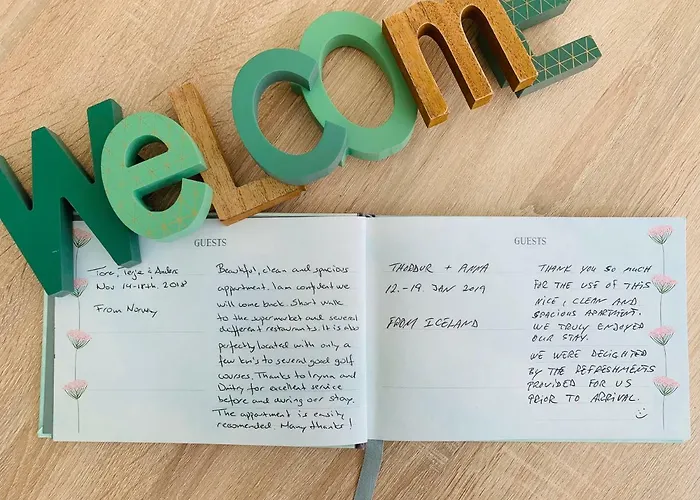 WeLCOME
GUESTS
Tore, Terje & Anders
Nov 14-18th, 2018
From Norway
Beautiful, clean and spacious
appartment. I am confident we
will come back. Short walk
to the supermarket and several
different restaurants. It is also
perfectly located with only a
few km's to several good golf
courses. Thanks to Iryna and
Dmitry for excellent service
before and during our stay.
The appartment is easily
recomended. Many thanks!
GUESTS
THORDUR + ANNA
12.-19. JAN 2019
FROM ICELAND
THANK YOU SO MUCH
FOR THE USE OF THIS
NICE, CLEAN AND
SPACIOUS APARTMENT.
WE TRULY ENJOYED
OUR STAY.
WE WERE DELIGHTED
BY THE REFRESHMENTS
PROVIDED FOR US
PRIOR TO ARRIVAL.